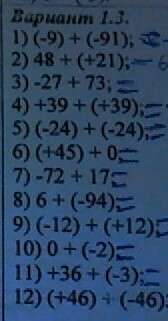 Вариант 1.3.
1) (-9) + (-91); =
2) 48 + (+21); =
3) -27 + 73; =
4) +39 + (+39); =
5) (-24) + (-24); =
6) (+45) + 0; =
7) -72 + 17 =
8) 6 + (-94) =
9) (-12) + (+12); =
10) 0 + (-2) =
11) +36 + (-3); =
12) (+46) + (-46);